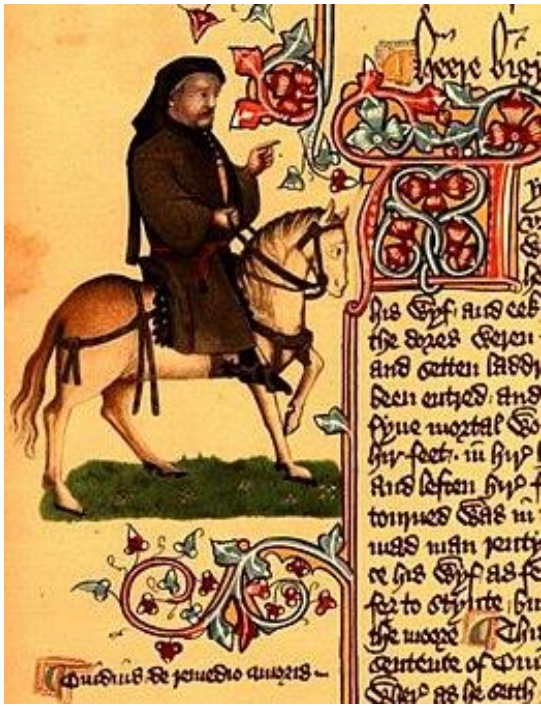 Heere bigy
A
his wyf and eek
the dores weren
and setten laddr
been entred and
fyue mortal wo
hir feet in hir
and leften hir f
tourned was in
mad man renty
ce his wyf as fe
for to stynte bu
the moore ¶ Thi
sentence of Oui
wher as he seith
¶ Ouidius de remedio amoris